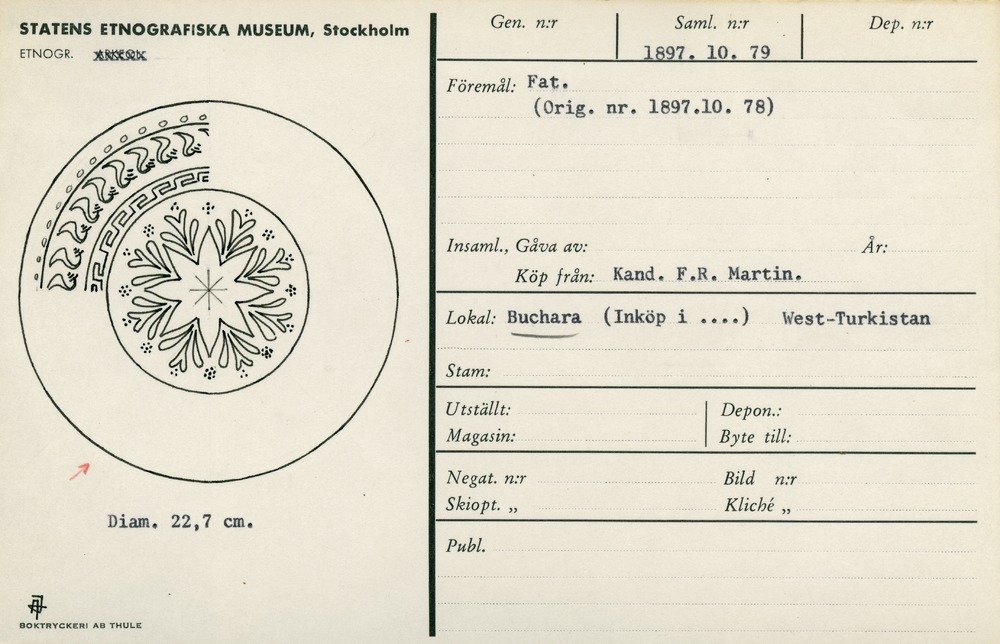 STATENS ETNOGRAFISKA MUSEUM, Stockholm
ETNOGR. ARKEOL.
Diam. 22,7 cm.
BOKTRYCKERI AB THULE
Gen. n:r
Saml. n:r
Dep. n:r
1897. 10. 79
Föremål: Fat.
(Orig. nr. 1897.10. 78)
Insaml., Gåva av: År:
Köp från: Kand. F.R. Martin.
Lokal: Buchara (Inköp i ....) West-Turkistan
Stam:
Utställt: Depon.:
Magasin: Byte till:
Negat. n:r Bild n:r
Skiopt. „ Kliché „
Publ.